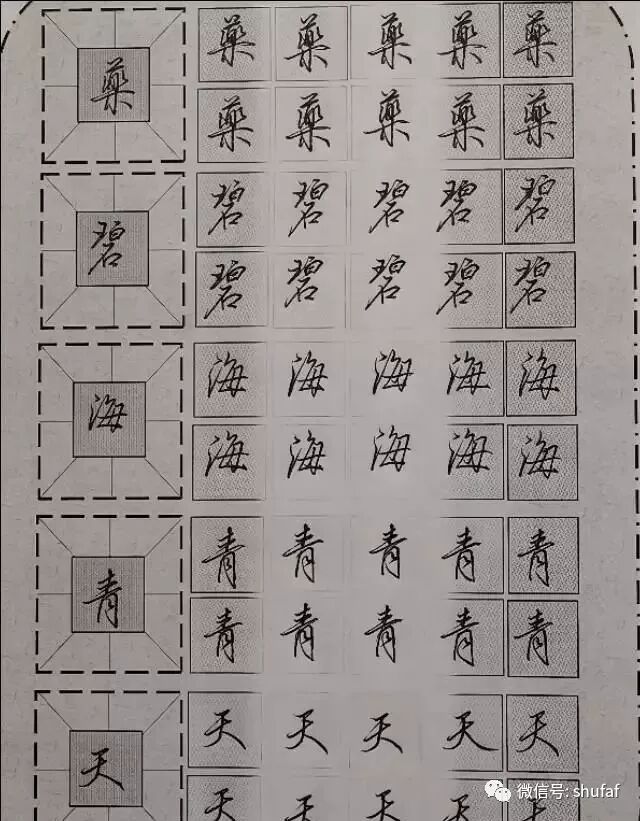 藥 藥 藥 藥 藥 藥
藥 藥 藥 藥 藥
碧 碧 碧 碧 碧 碧
碧 碧 碧 碧 碧
海 海 海 海 海 海
海 海 海 海 海
青 青 青 青 青 青
青 青 青 青 青
天 天 天 天 天 天
天 天 天 天 天
微信号: shufaf